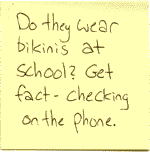 Do they wear
bikinis at
school? Get
fact-checking
on the phone.